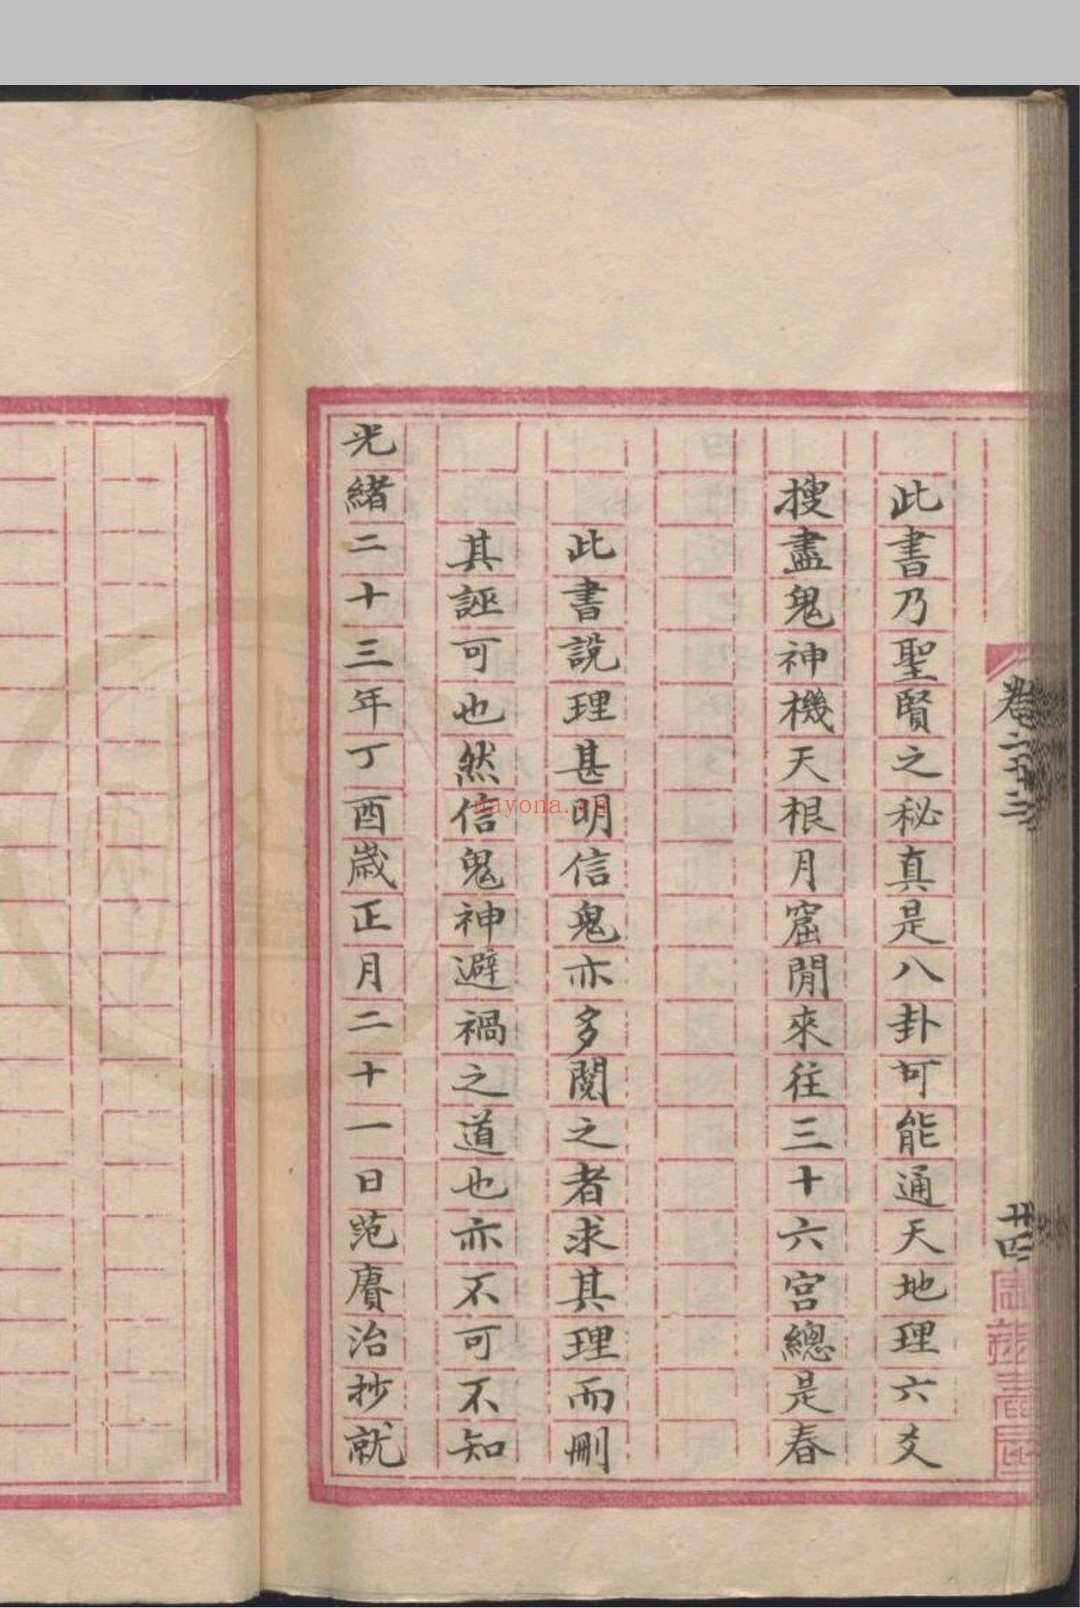 此書乃聖賢之秘真是八卦可能通天地理六爻
搜盡鬼神機天根月窟閒來往三十六宮總是春
此書説理甚明信鬼亦多閱之者求其理而刪
其誣可也然信鬼神避禍之道也亦不可不知
光緒二十三年丁酉歲正月二十一日范賡治抄就
卷二十三
廿四
nayona.cn